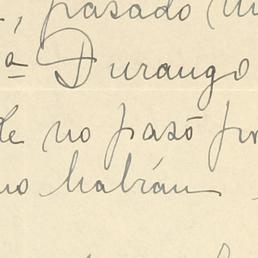 , pasado
ª Durango
de no pasó
no habían